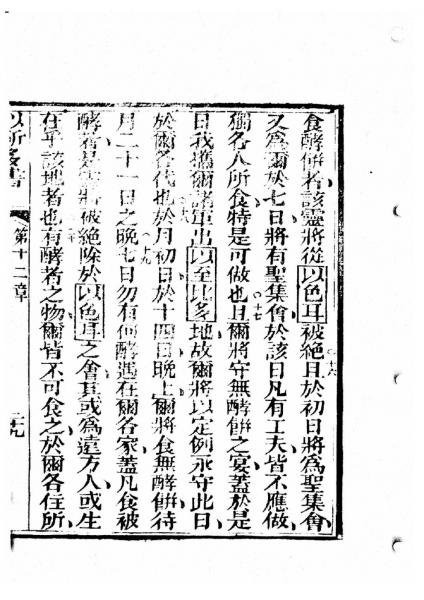 食酵餅者該靈將從以色耳被絕且於初日將爲聖集會
又爲爾於七日將有聖集會於該日凡有工夫皆不應做
獨各人所食特是可做也且爾將守無酵餅之宴蓋於是
日我攜爾諸軍出以至比多地故爾將以定例永守此日
於爾各代也於月初日於十四日晚上爾將食無酵餅待
月二十一日之晚七日勿有何酵遇在爾各家蓋凡食被
酵者是靈將被絕除於以色耳之會其或爲遠方人或生
在乎該地者也有酵者之物爾皆不可食之於爾各住所
第十二章